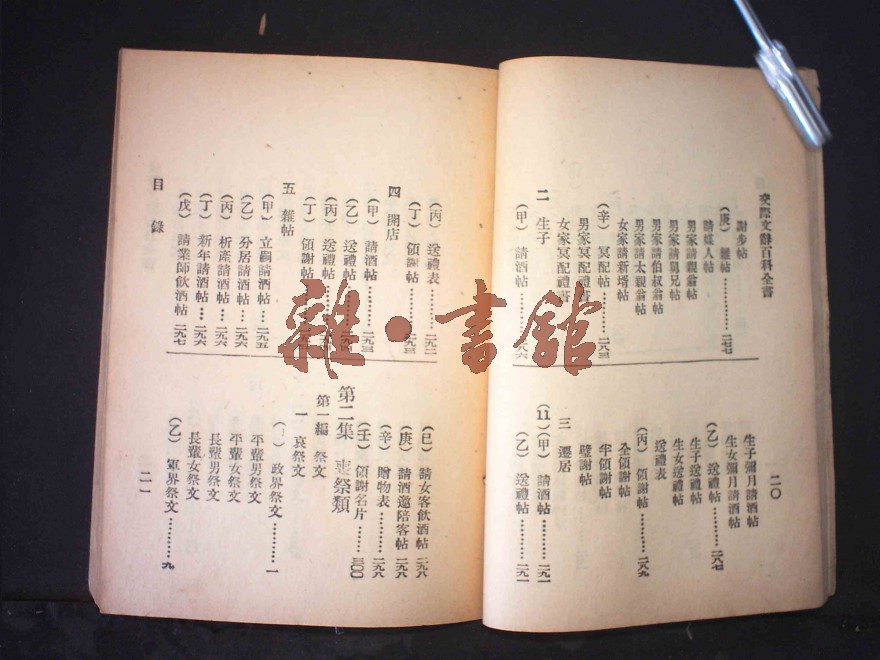 交際文辭百科全書
謝步帖
(庚) 雜帖………二七七
請媒人帖
男家請親翁帖
男家請舅兄帖
男家請伯叔翁帖
男家請太親翁帖
女家請新壻帖
(辛) 冥配帖………二八三
男家冥配禮書
女家冥配禮書
二 生子
(甲) 請酒帖
二〇
生子彌月請酒帖
生女彌月請酒帖
(乙) 送禮帖………二八七
生子送禮帖
生女送禮帖
送禮表
(丙) 領謝帖………二八九
全領謝帖
半領謝帖
璧謝帖
三 遷居
(甲) 請酒帖………二九一
(乙) 送禮帖………二九一
(丙) 送禮表………二九二
(丁) 領謝帖………二九三
四 開店
(甲) 請酒帖………二九三
(乙) 送禮帖
(丙) 送禮帖
(丁) 領謝帖
五 雜帖
(甲) 立嗣請酒帖…二九五
(乙) 分居請酒帖…二九六
(丙) 析產請酒帖…二九六
(丁) 新年請酒帖…二九六
(戊) 請業師飲酒帖 二九七
目錄
(己) 請女客飲酒帖 二九八
(庚) 請酒邀陪客帖 二九八
(辛) 贈物表………二九八
(壬) 領謝名片……三〇〇
第二集 喪祭類
第一編 祭文
一 哀祭文
政界祭文………一
平輩男祭文
平輩女祭文
長輩男祭文
長輩女祭文
(乙) 軍界祭文………九
二一
雜·書館